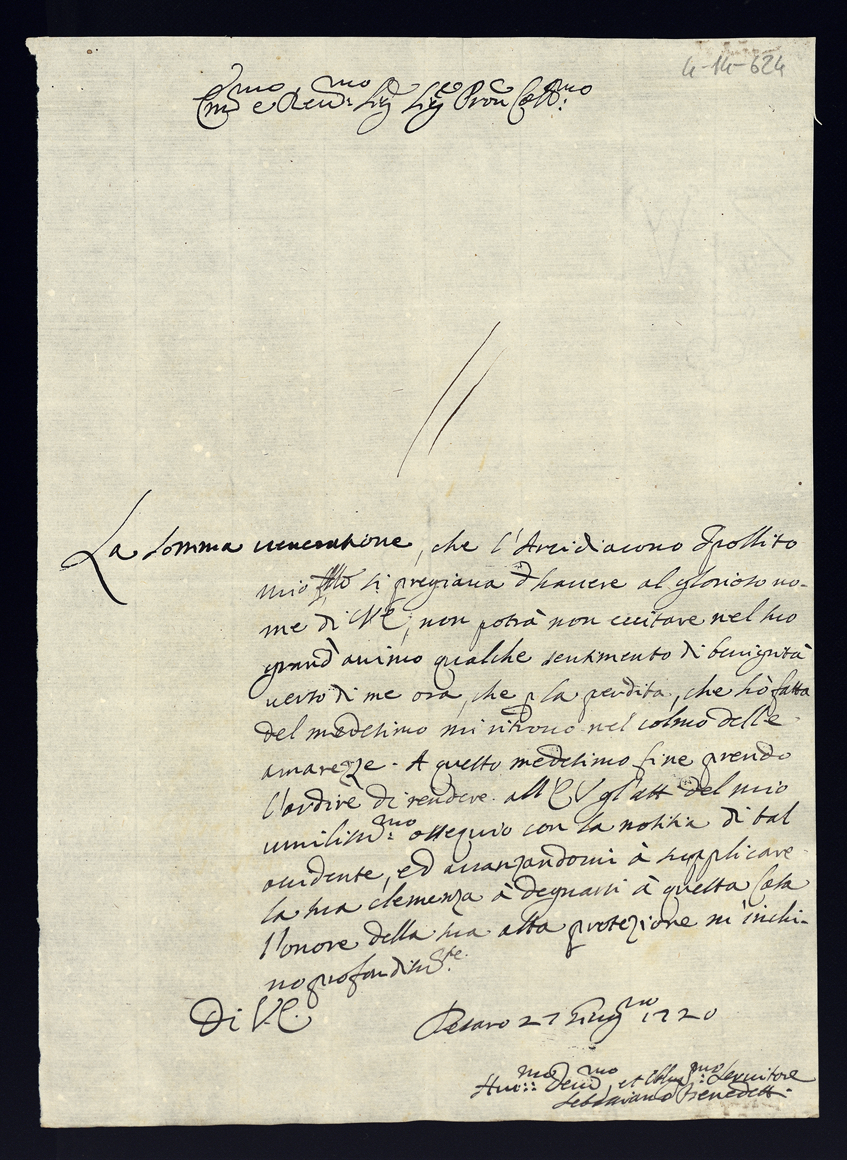 4-14-624
Em̃o e Reu:mo Sigr Sigr Pron Col:mo
La somma ueneratione, che l'Arcidiacono Ippolito
mio si pregiaua d'hauere al glorioso no-
me di VE, non potrà non eccitare nel suo
grand'animo qualche sentimento di benignità
uerso di me ora, che p la perdita, che hò fatta
del medesimo mi ritrouo nel colmo delle
amarezze. A questo medesimo fine prendo
l'ardire di rendere all'E V gl'atti del mio
umiliss:mo ossequio con la notitia di tal
accidente, ed auanzandomi à supplicare
la sua clemenza à degnarsi à questa Casa
l'onore della sua alta protezione m'inchi-
no profondiss:te
Di V.E.
Pesaro 27 Giug:no 1720
Hum:mo Deu:mo et Obl:mo Seruitore
Sebastiano Benedetti